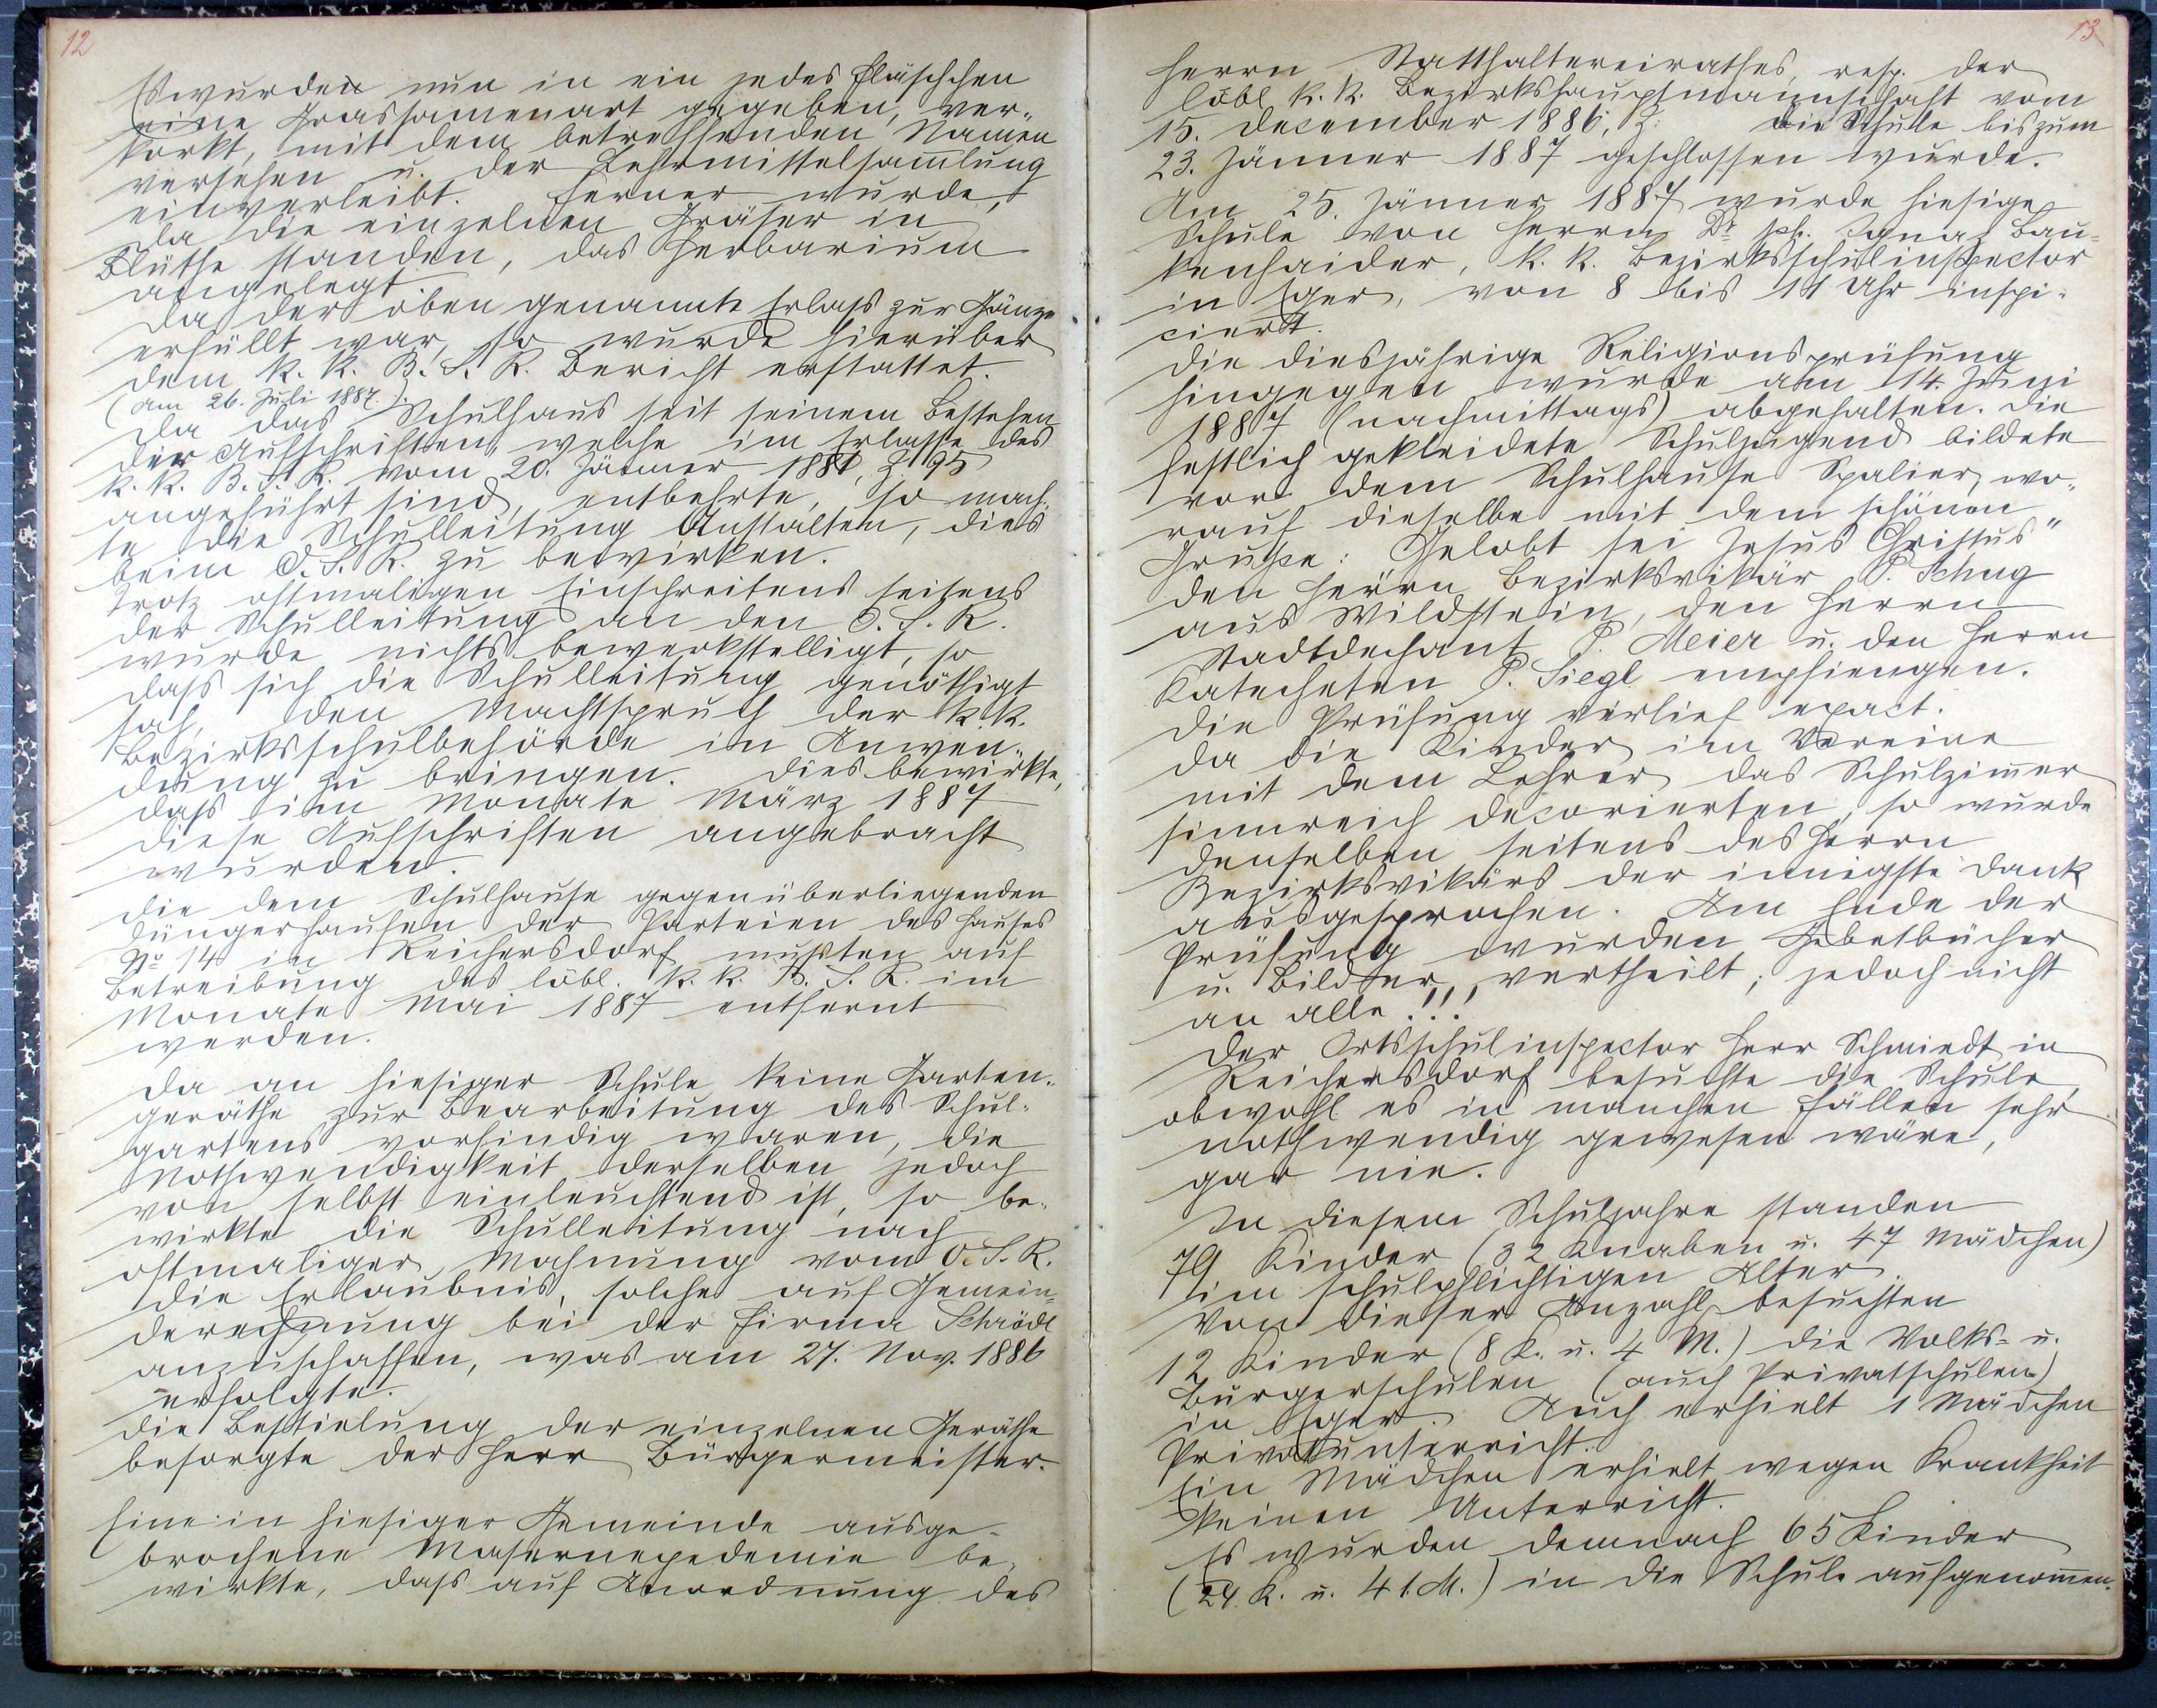 12
Es wurden nun in ein jedes Fläschchen
eine Grassamenart gegeben, ver-
korkt, mit dem betreffenden Namen
versehen u. der Lehrmittelsammlung
einverleibt. Ferner wurde,
da die einzelnen Gräser in
Blüthe standen, das Herbarium
angelegt.
Da der oben genannte Erlaß zur Gänze
erfüllt war, so wurde hierüber
dem k. k. B. S. R. Bericht erstattet.
(Am 26. Juli 1887.)
Da das Schulhaus seit seinem Bestehen
der Aufschriften, welche im Erlasse des
k. k. B. S. R. vom 20. Jänner 1881, Z 95
angeführt sind, entbehrte, so mach-
te die Schulleitung Anstalten, dies
beim O. S. R. zu bewirken.
Trotz oftmaligen Einschreitens seitens
der Schulleitung an den O. S. R.
wurde nichts bewerkstelligt, so
daß sich die Schulleitung genöthigt
sah, den Machtspruch der k. k.
Bezirksschulbehörde in Anwen-
dung zu bringen. Dies bewirkte,
daß im Monate März 1887
diese Aufschriften angebracht
wurden.
Die dem Schulhause gegenüberliegenden
Düngerhaufen der Parteien des Hauses
No 14 in Reichersdorf mußten auf
Betreibung des löbl. k. k. B. S. R. im
Monate Mai 1887 entfernt
werden.
Da an hiesiger Schule keine Garten-
geräthe zur Bearbeitung des Schul-
gartens vorfindig waren, die
Nothwendigkeit derselben jedoch
von selbst einleuchtend ist, so be-
wirkte die Schulleitung nach
oftmaliger Mahnung vom O. S. R.
die Erlaubnis, solche auf Gemein-
derechnung bei der Firma Schrödl
anzuschaffen, was am 27. Nov. 1886
erfolgte.
Die Bestielung der einzelnen Geräthe
besorgte der Herr Bürgermeister.
Eine in hiesiger Gemeinde ausge-
brochene Masernepedemie be-
wirkte, daß auf Anordnung des
13
Herrn Statthaltereirathes, resp. der
löbl. k. k. Bezirkshauptmannschaft vom
15. December 1886, Z: die Schule bis zum
23. Jänner 1887 geschlossen wurde.
Am 25. Jänner 1887 wurde hiesige
Schule von Herrn Dr ph. Ignaz Bau-
kenhaider, k. k. Bezirksschulinspector
in Eger, von 8 bis 11 Uhr inspi-
ciert.
Die diesjährige Religionsprüfung
hingegen wurde am 14. Juni
1887 (nachmittags) abgehalten. Die
festlich gekleidete Schuljugend bildete
vor dem Schulhause Spalier, wo-
rauf dieselbe mit dem schönen
Gruße: Gelobt sei Jesus Christus"
den Herrn Bezirksvikär P. Schug
aus Wildstein, den Herrn
Stadtdechant P. Meier u. den Herrn
Katecheten P. Siegl empfiengen.
Die Prüfung verlief exact.
Da die Kinder im Vereine
mit dem Lehrer das Schulzimmer
sinnreich decorierten, so wurde
denselben seitens des Herrn
Bezirksvikärs der innigste Dank
ausgesprochen. Am Ende der
Prüfung wurden Gebetbücher
u. Bilder vertheilt, jedoch nicht
an alle!!!
Der Ortsschulinspector Herr Schmiedt in
Reichersdorf besuchte die Schule,
obwohl es in manchen Fällen sehr
nothwendig gewesen wäre,
gar nie.
In diesem Schuljahre standen
79 Kinder (32 Knaben u. 47 Mädchen)
im schulpflichtigen Alter.
Von dieser Anzahl besuchten
12 Kinder (8 K. u. 4 M.) die Volks- u.
Bürgerschulen (auch Privatschulen)
in Eger. Auch erhielt 1 Mädchen
Privatunterricht.
Ein Mädchen erhielt wegen Krankheit
keinen Unterricht.
Es wurden demnach 65 Kinder
(24 K. u. 41 M.) in die Schule aufgenommen.